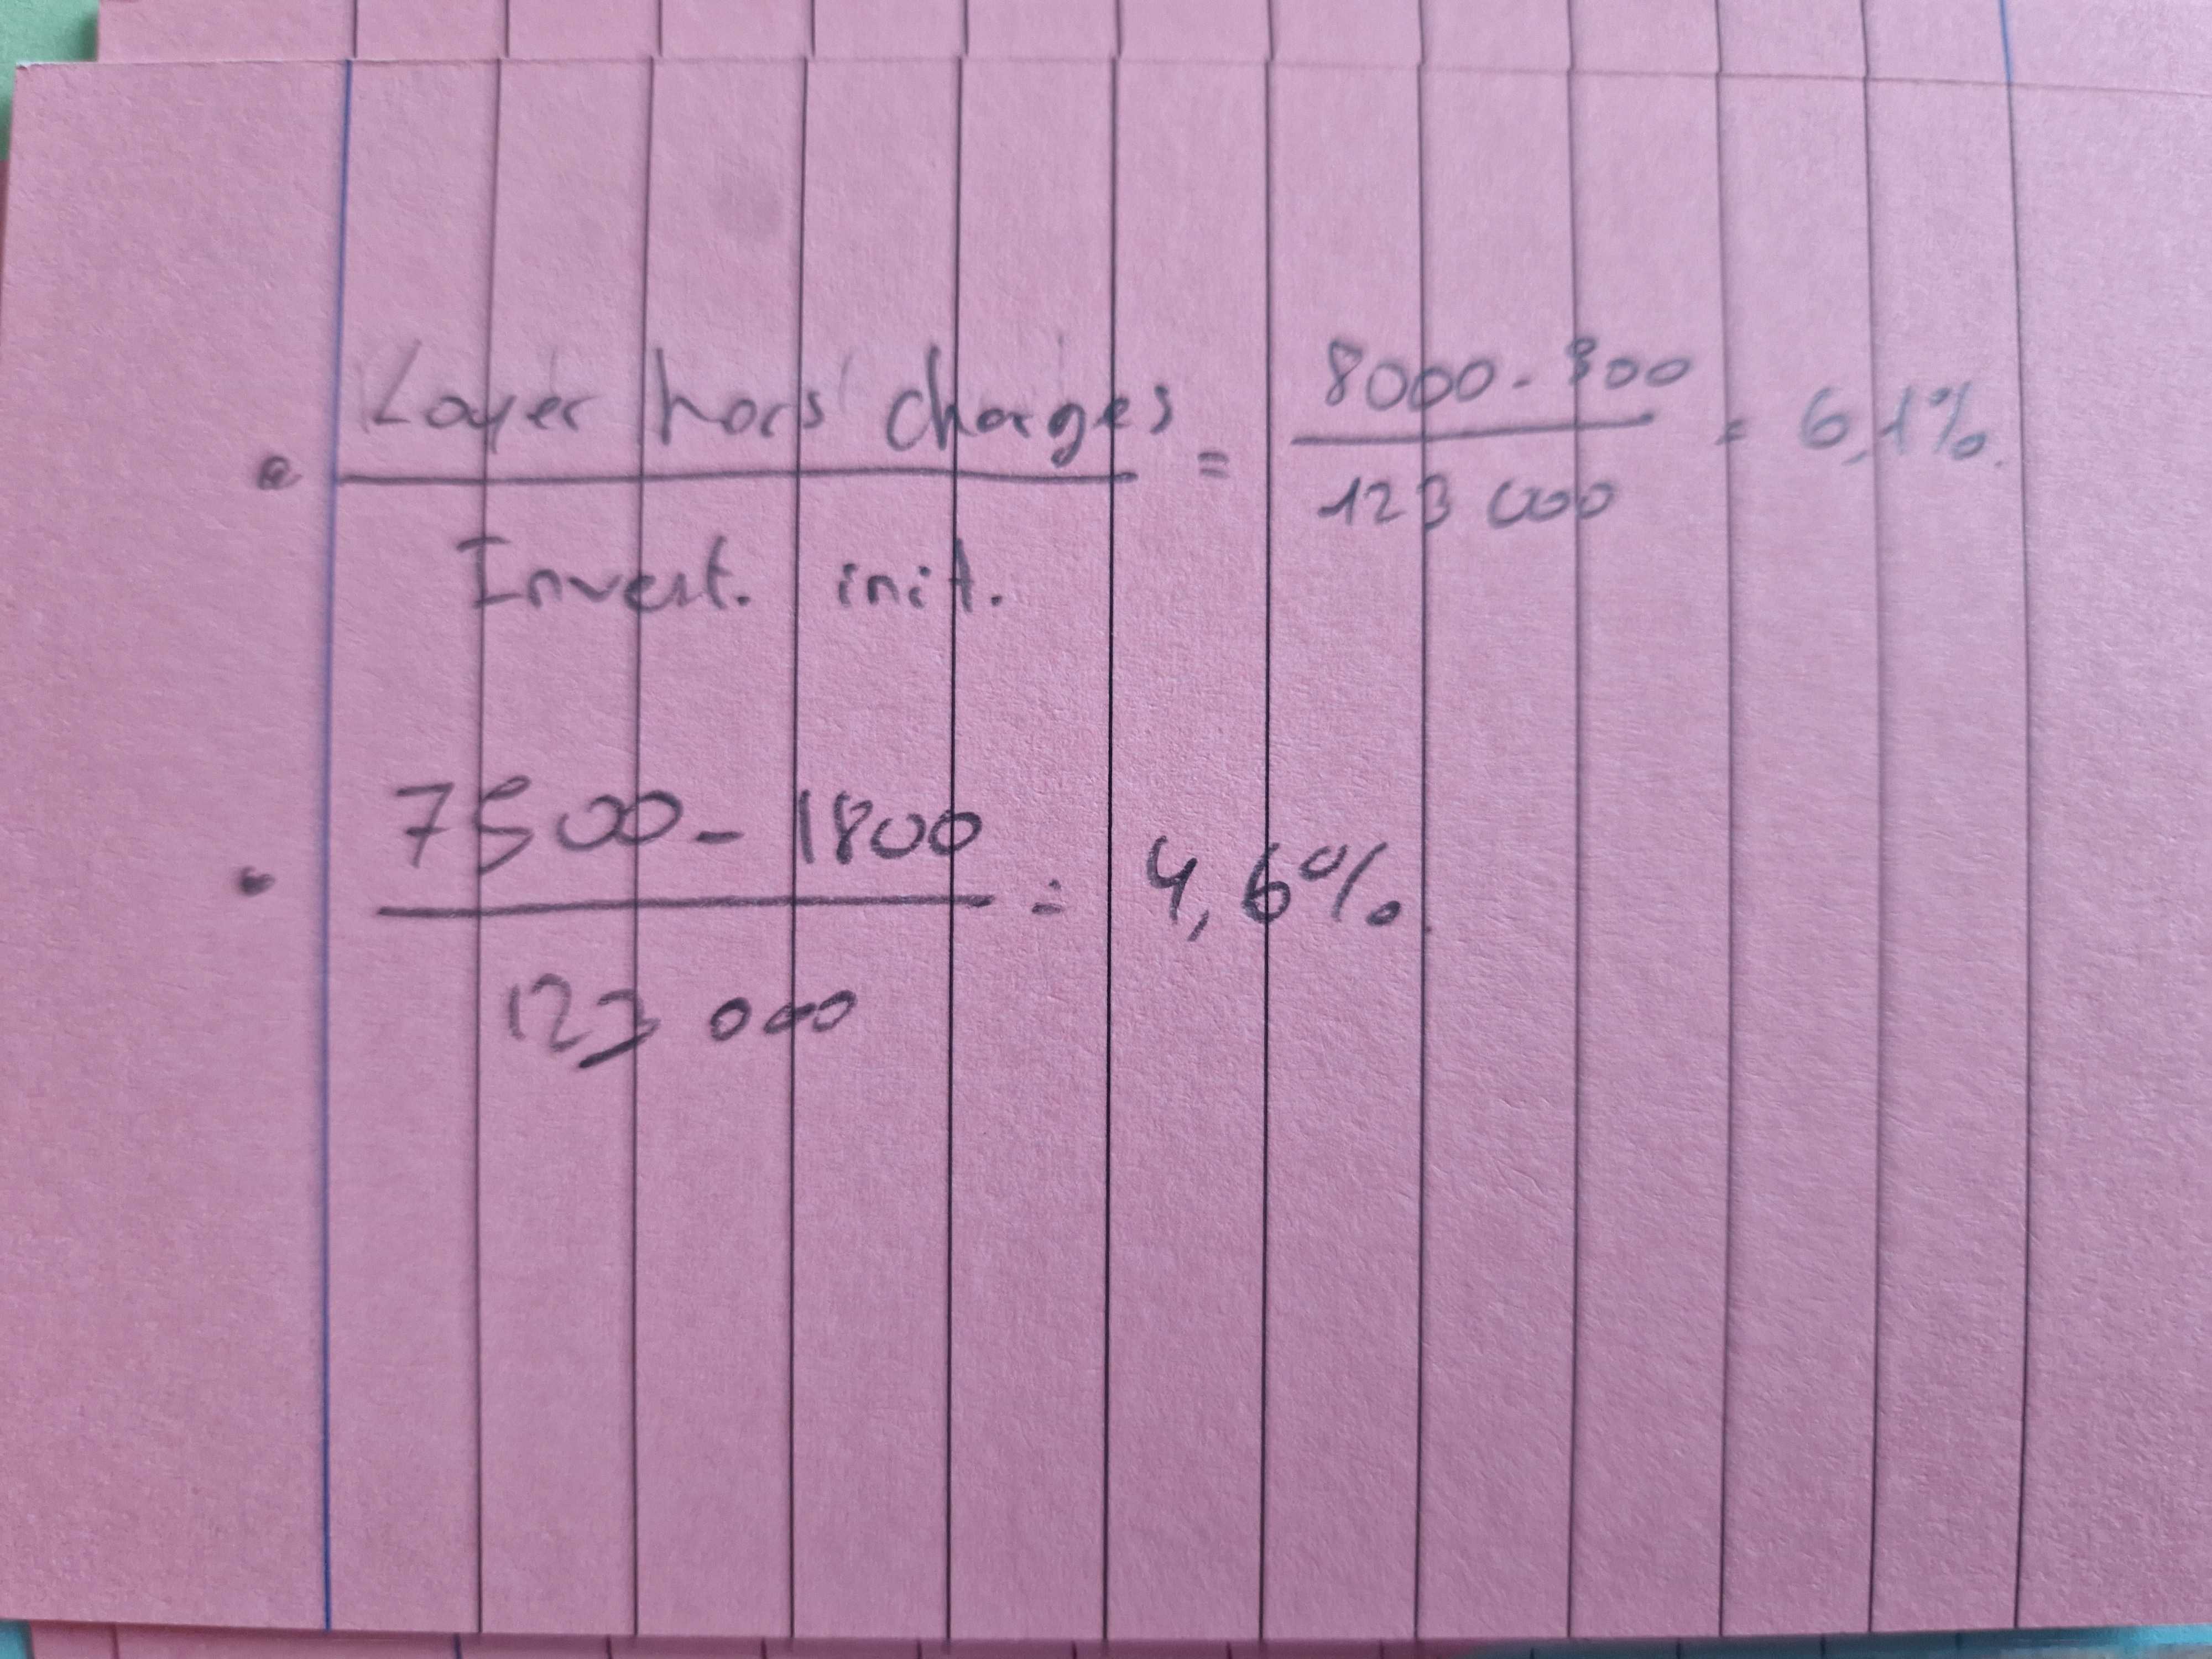 • Loyer hors charges / Invest. init. = 8000 - 300 / 123 000 = 6,1%.
• 7500 - 1800 / 123 000 = 4,6%.